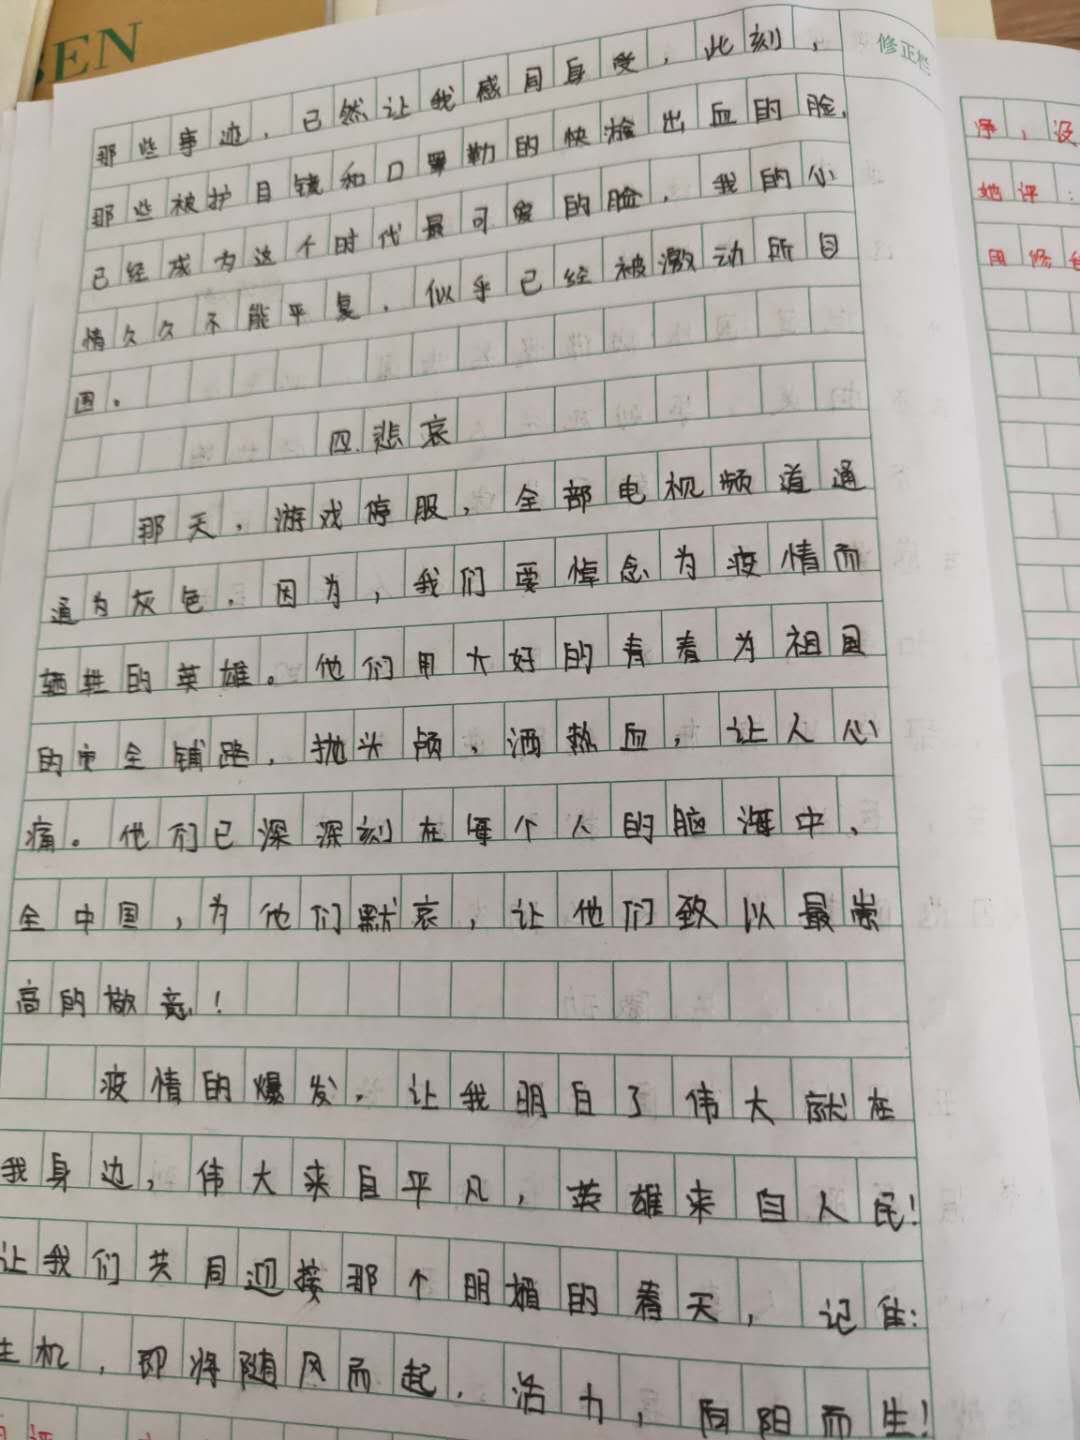 BEN
修正栏
那些事迹，已然让我感同身受，此刻，
那些被护目镜和口罩勒的快渗出血的脸，
已经成为这个时代最可爱的脸，我的心
情久久不能平复，似乎已经被激动所包
围。
四.悲哀
那天，游戏停服，全部电视频道通
通为灰色，因为，我们要悼念为疫情而
牺牲的英雄。他们用大好的青春为祖国
的安全铺路，抛头颅，洒热血，让人心
痛。他们已深深刻在每个人的脑海中，
全中国，为他们默哀，让他们致以最崇
高的敬意！
疫情的爆发，让我明白了伟大就在
我身边，伟大来自平凡，英雄来自人民！
让我们共同迎接那个明媚的春天，记住：
生机，即将随风而起，活力，向阳而生！
净，没
她评：
用修